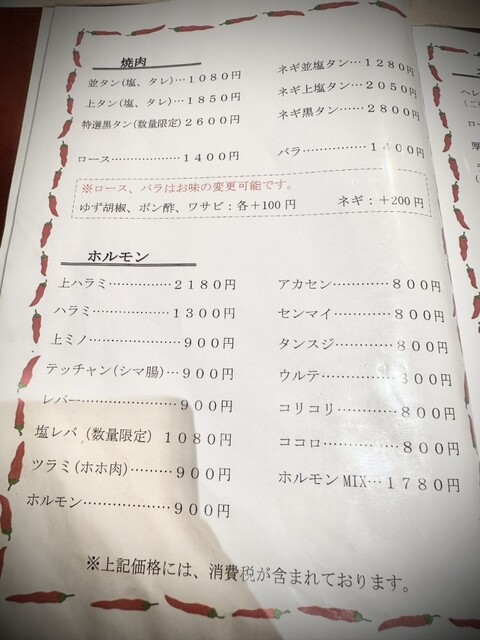 焼肉
並タン(塩、タレ)…１０８０円
上タン(塩、タレ)…１８５０円
特選黒タン(数量限定)２６００円
ロース………………１４００円
ネギ並塩タン…１２８０円
ネギ上塩タン…２０５０円
ネギ黒タン……２８００円
バラ……………１４００円
※ロース、バラはお味の変更可能です。
ゆず胡椒、ポン酢、ワサビ：各＋100円 ネギ：＋200円
ホルモン
上ハラミ……………２１８０円
ハラミ………………１３００円
上ミノ…………………９００円
テッチャン(シマ腸)…９００円
レバー…………………９００円
塩レバ（数量限定）１０８０円
ツラミ(ホホ肉)………９００円
ホルモン………………９００円
アカセン…………８００円
センマイ…………８００円
タンスジ…………８００円
ウルテ……………８００円
コリコリ…………８００円
ココロ……………８００円
ホルモンMIX…１７８０円
※上記価格には、消費税が含まれております。